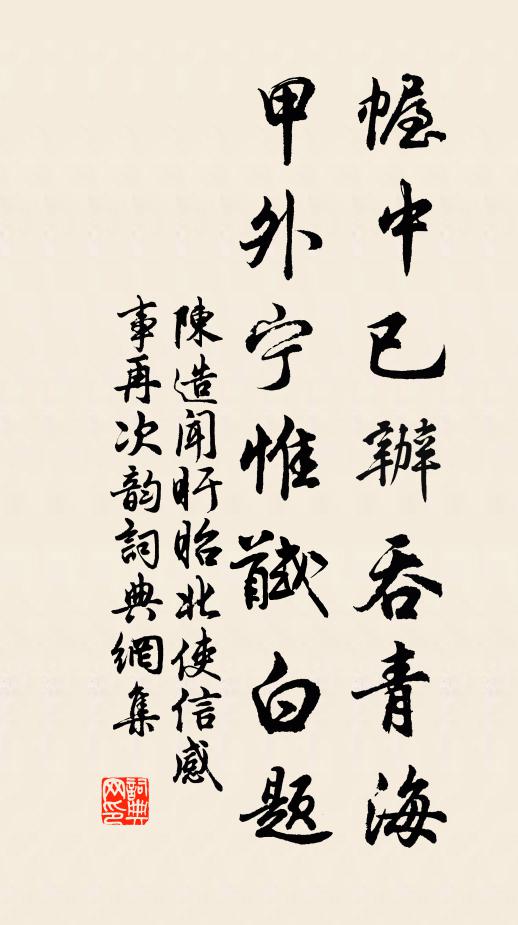 幄中已辦吞青海
甲外宁惟馘白题
陳造闻盱眙北使信感
事再次韵詞典網集
詞典网印